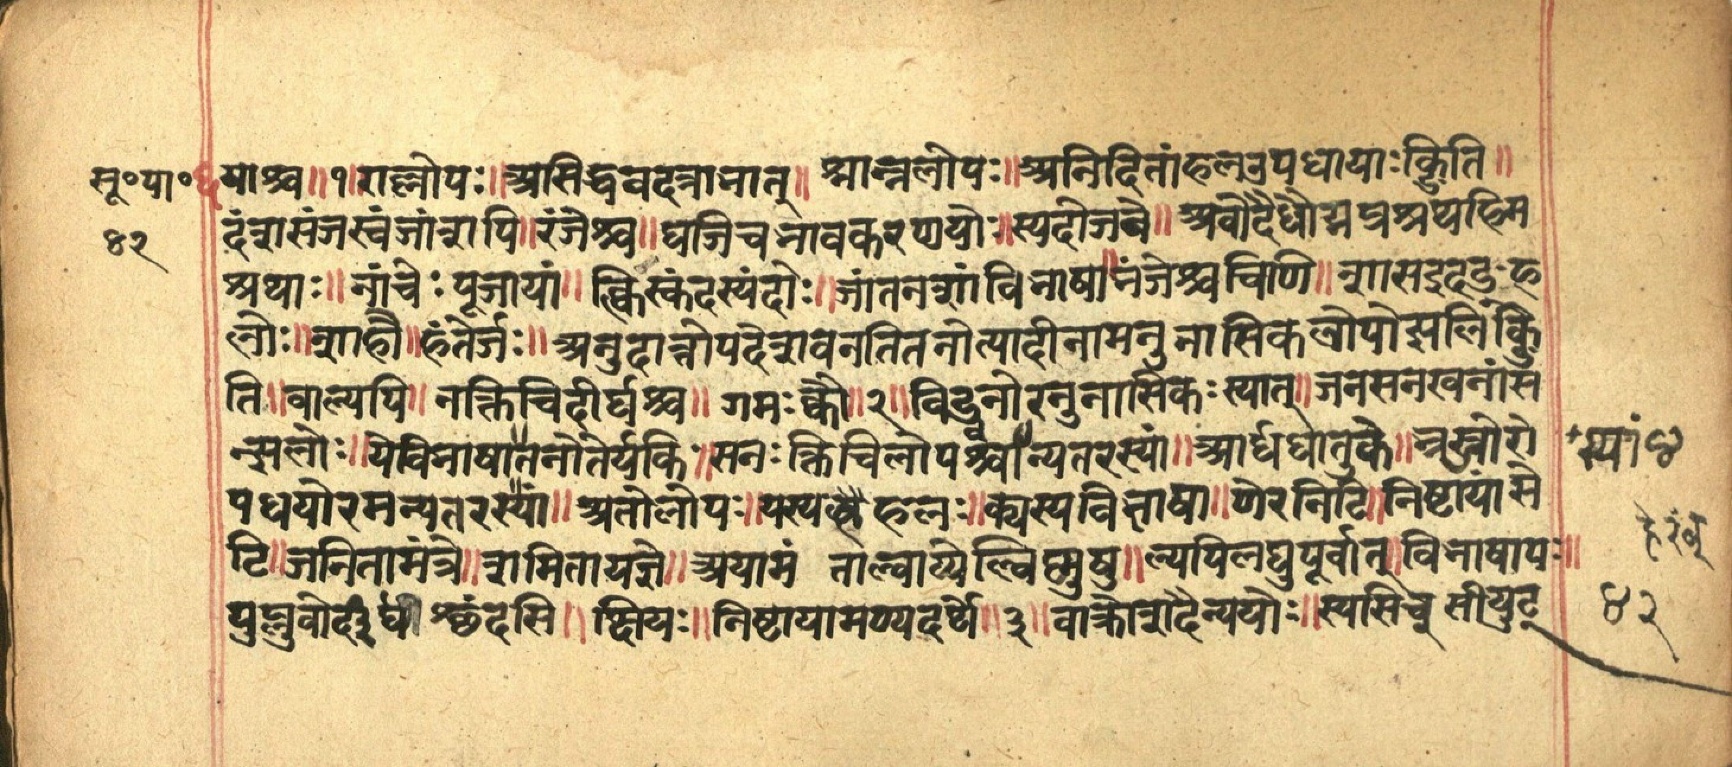 सू॰पा॰६
४२
याश्च॥१॥राल्लोपः॥असिद्धवदत्राभात्॥ श्नान्नलोपः॥अनिदितांहलउपधायाःक्ङिति॥
दंशसंजस्वंजांशपि॥रंजेश्च॥घञिचभावकरणयोः॥स्यदोजवे॥अवोदैधौद्मप्रश्रथहिम
श्रथाः॥नांचेः पूजायां॥ क्त्विस्कंदस्यंदोः॥जांतनशांविभाषा॥भंजेश्चचिणि॥शासइदङ्ह
लोः॥शाहौ॥हंतेर्जः॥अनुदात्तोपदेशवनतितनोत्यादीनामनुनासिकलोपोझलिक्ङि
ति॥वाल्यपि॥नक्तिचिदीर्घश्च॥गमःक्वौ॥२॥विड्वनोरनुनासिकःस्यात्॥जनसनखनांस
न्झलोः॥येविभाषा॥तनोतेर्यकि॥सनःक्तिचिलोपश्चान्यतरस्यां॥आर्धधातुके॥भ्रस्जोरो
पधयोरमन्यतरस्यां॥अतोलोपः॥यस्यहलः॥क्यस्यविभाषा॥णेरनिटि॥निष्टायांसे
टि॥जनितामंत्रे॥शमितायज्ञे॥अयामंताल्वाय्येत्न्विष्णुषु॥ल्यपिलघुपूर्वात्॥विभाषापः॥
युप्लुवोदीर्घश्छंदसि॥क्षियः॥निष्टायामण्यदर्थे॥३॥वाक्रोशदैन्ययोः॥स्यसिच्सीयुट्
स्यां४
४२